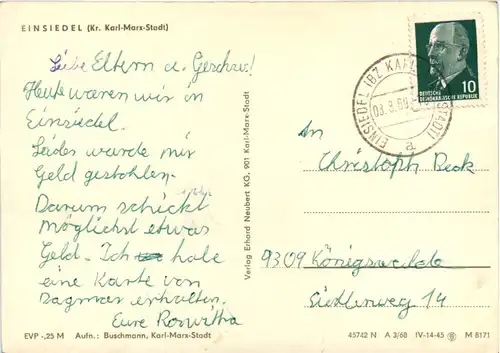 EINSIEDEL (Kr. Karl-Marx-Stadt)
Liebe Eltern u. Geschw.!
Heute waren wir in
Einsiedel.
Leider wurde mir
Geld gestohlen.
Darum schickt
möglichst etwas
Geld. Ich habe
eine Karte von
Dagmar erhalten.
Eure Roswitha
EVP -,25 M Aufn.: Buschmann, Karl-Marx-Stadt
Verlag Erhard Neubert KG, 901 Karl-Marx-Stadt
EINSIEDEL (BZ KARL
STADT)
a
10
DEUTSCHE
DEMOKRATISCHE REPUBLIK
An
Christoph Beck
9309 Königswalde
Siedlerweg 14
45742 N A 3/68 IV-14-45 M 8171